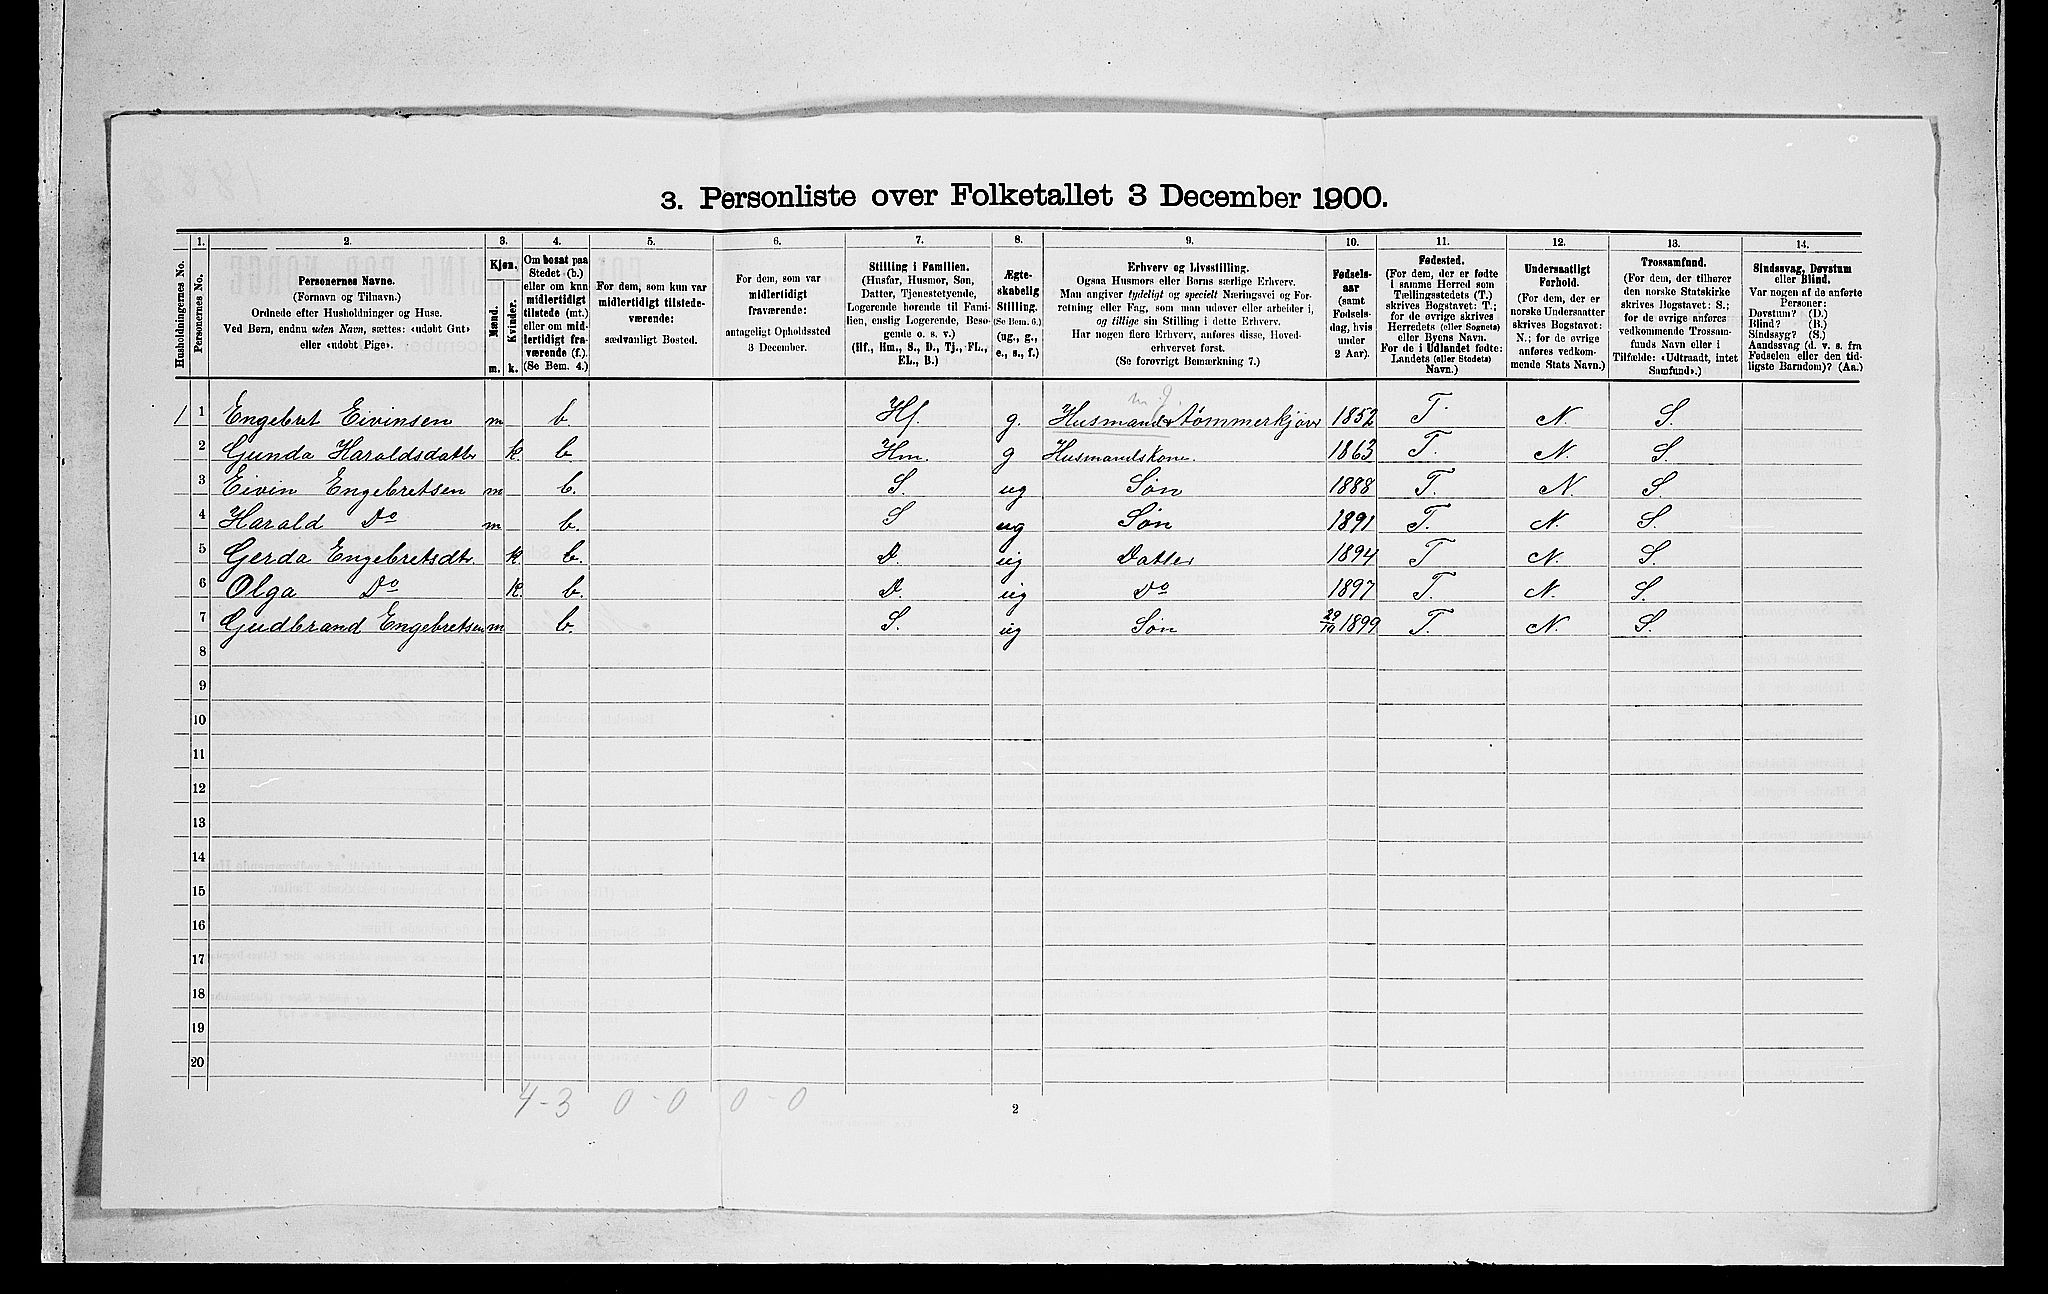 3. Personliste over Folketallet 3 December 1900.
Husholdningernes No.
1.
Personernes No.
2.
Personernes Navne.
(Fornavn og Tilnavn.)
Ordnede efter Husholdninger og Huse.
Ved Børn, endnu uden Navn, sættes: «udøbt Gut»
eller «udøbt Pige».
3.
Kjøn.
Mænd.
Kvinder.
m. k.
4.
Om bosat paa
Stedet (b.)
eller om kun
midlertidigt
tilstede (mt.)
eller om mid-
lertidigt fra-
værende (f.).
(Se Bem. 4.)
5.
For dem, som kun var
midlertidigt tilstede-
værende:
sædvanligt Bosted.
6.
For dem, som var
midlertidigt
fraværende:
antageligt Opholdssted
3 December.
7.
Stilling i Familien.
(Husfar, Husmor, Søn,
Datter, Tjenestetyende,
Logerende hørende til Fami-
lien, enslig Logerende, Besø-
gende o. s. v.)
(Hf., Hm., S., D., Tj., FL.,
EL., B.)
8.
Ægte-
skabelig
Stilling.
(Se Bem. 6.)
(ug., g.,
e., s., f.)
9.
Erhverv og Livsstilling.
Ogsaa Husmors eller Børns særlige Erhverv.
Man angiver tydeligt og specielt Næringsvei og For-
retning eller Fag, som man udøver eller arbeider i,
og tillige sin Stilling i dette Erhverv.
Har nogen flere Erhverv, anføres disse, Hoved-
erhvervet først.
(Se forøvrigt Bemærkning 7.)
10.
Fødsels-
aar
(samt
Fødsels-
dag, hvis
under
2 Aar).
11.
Fødested.
(For dem, der er fødte
i samme Herred som
Tællingsstedets (T.)
skrives Bogstavet: T.;
for de øvrige skrives
Herredets (eller Sognets)
eller Byens Navn.
For de i Udlandet fødte:
Landets (eller Stedets)
Navn.)
12.
Undersaatligt
Forhold.
(For dem, der er
norske Undersaatter
skrives Bogstavet:
N.; for de øvrige
anføres vedkom-
mende Stats Navn.)
13.
Trossamfund.
(For dem, der tilhører
den norske Statskirke
skrives Bogstavet: S.;
for de øvrige anføres
vedkommende Trossam-
funds Navn eller i
Tilfælde: «Udtraadt, intet
Samfund».)
14.
Sindssvag, Døvstum
eller Blind.
Var nogen af de anførte
Personer:
Døvstum? (D.)
Blind? (B.)
Sindssyg? (S.)
Aandssvag (d. v. s. fra
Fødselen eller den tid-
ligste Barndom)? (Aa.)
1 1 Engebret Eivinsen m b Hf. g. Husmand & tømmerkjører 1852 T. N. S.
2 Gunda Haraldsdatter k. b. Hm. g Husmandskone. 1863 T. N. S.
3 Eivin Engebretsen m b. S. ug Søn 1888 T. N. S
4 Harald Do m b. S ug Søn 1891 T. N. S.
5 Gerda Engebretsdtr. k. b. D. ug Datter 1894 T N. S.
6 Olga Do k. b. D. ug Do 1897 T. N. S.
7 Gudbrand Engebretsen m b. S. ug Søn 29/10 1899 T. N. S.
8
9
10
11
12
13
14
15
16
17
18
19
20
4-3 0-0 0-0
2